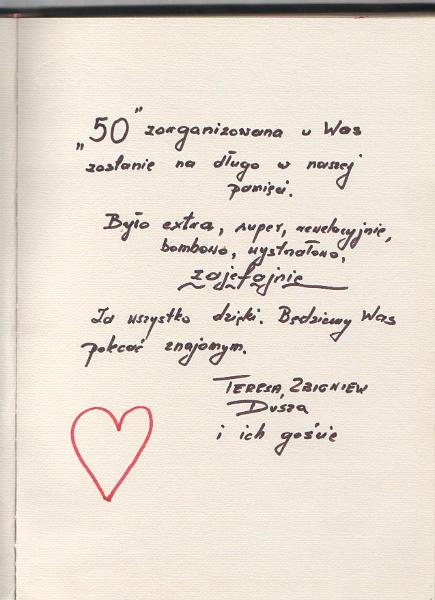 „50" zorganizowana u Was
zostanie na długo w naszej
pamięci.
Było extra, super, rewelocyjnie,
bombowo, wystrzałowo,
zajefajnie
Za wszystko dzięki. Będziemy Was
polecać znajomym.
TERESA, ZBIGNIEW
Dusza
i ich goście